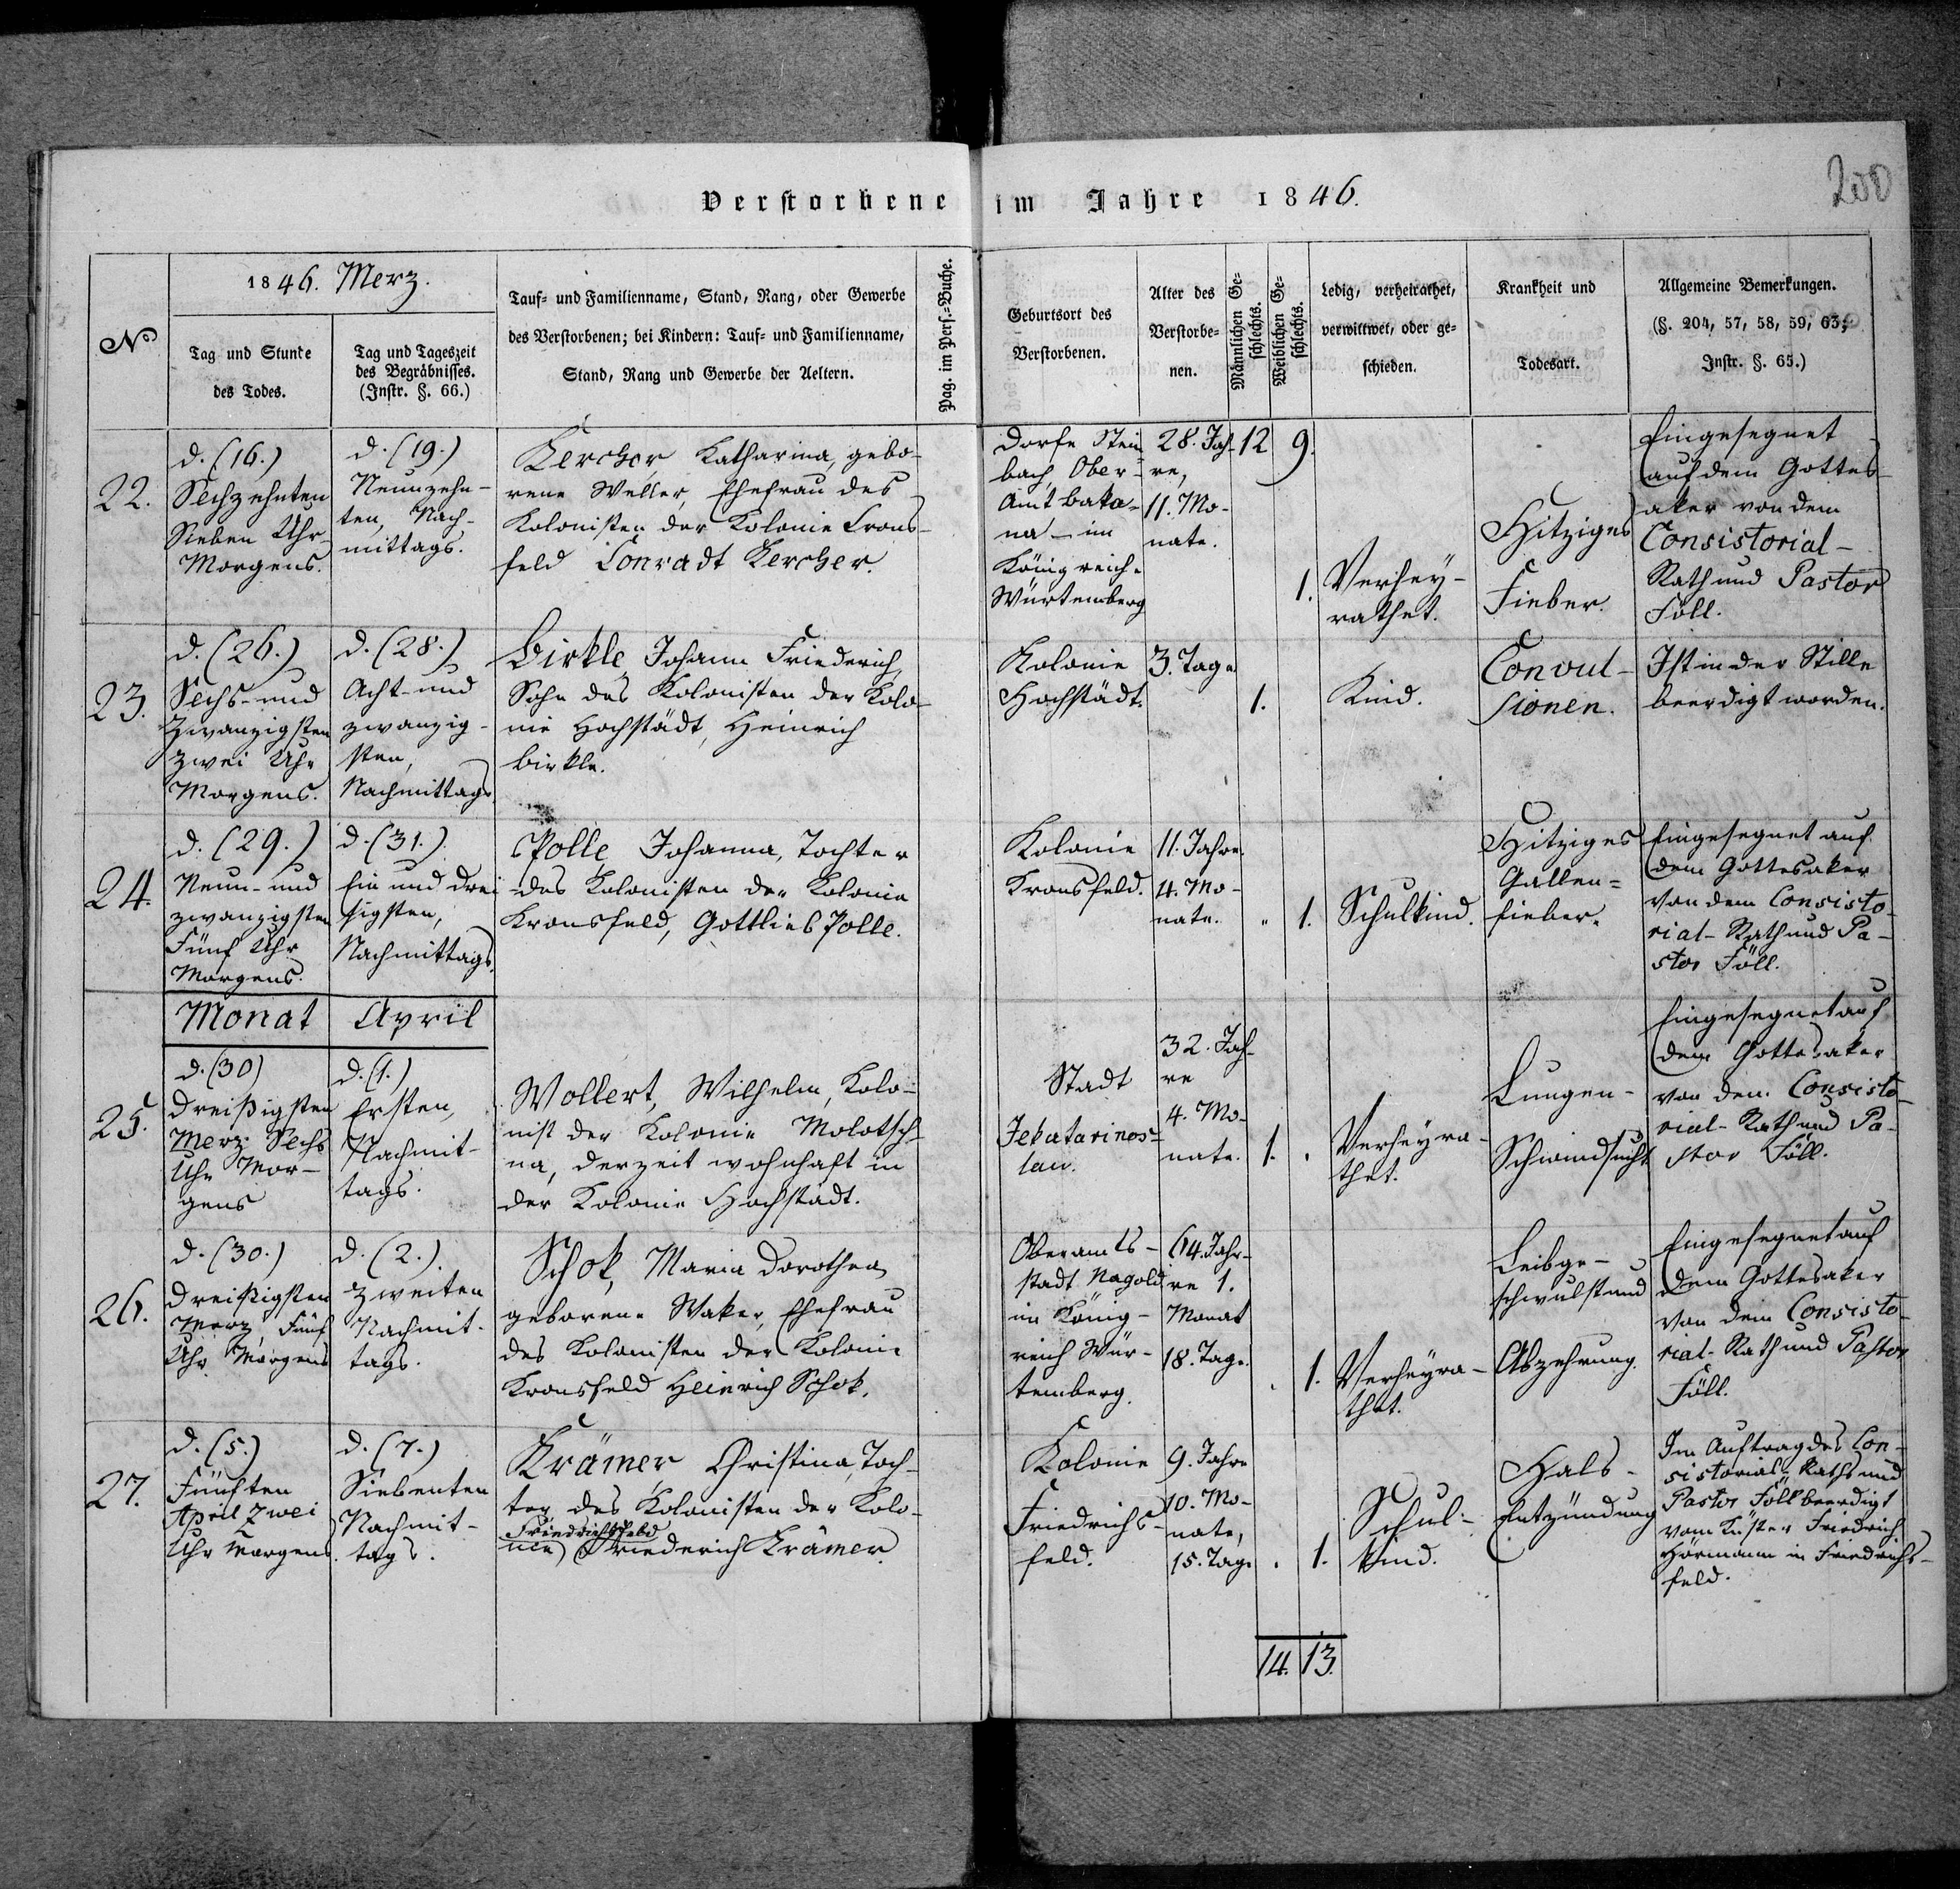 Verstorbene im Jahre 1846.
200
№
1846. Merz.
Tag und Stunde
des Todes.
Tag und Tageszeit
des Begräbnisses.
(Instr. §. 66.)
Tauf- und Familienname, Stand, Rang, oder Gewerbe
des Verstorbenen; bei Kindern: Tauf- und Familienname,
Stand, Rang und Gewerbe der Aeltern.
Pag. im Pers.-Buche.
Geburtsort des
Verstorbenen.
Alter des
Verstorbe-
nen.
Männlichen Ge-
schlechts.
Weiblichen Ge-
schlechts.
Ledig, verheirathet,
verwittwet, oder ge-
schieden.
Krankheit und
Todesart.
Allgemeine Bemerkungen.
(§. 204, 57, 58, 59, 63;
Instr. §. 65.)
22.
d. (16.)
Sechzehnten
Sieben Uhr
Morgens.
d. (19.)
Neunzehn-
ten, Nach-
mittags.
Kercher, Katharina, gebo-
rene Weller, Ehefrau des
Kolonisten der Kolonie Crons-
feld Conradt Kercher.
Dorfe Stein
bach, Ober-
Amt Baka-
na - im
Königreiche
Würtemberg
28. Jah-
re,
11. Mo-
nate.
12
9.
1.
Verhey-
rathet.
Hitziges
Fieber.
Eingesegnet
auf dem Gottes-
aker von dem
Consistorial-
Rath und Pastor
Föll.
23.
d. (26.)
Sechs- und
Zwanzigsten
Zwei Uhr
Morgens.
d. (28.)
Acht- und
zwanzig-
sten,
Nachmittags.
Birkle, Johann Friederich,
Sohn des Kolonisten der Kolo-
nie Hochstädt, Heinrich
Birkle.
Kolonie
Hochstädt.
3. Tage
1.
Kind.
Convul-
sionen.
Ist in der Stille
beerdigt worden.
24.
d. (29.)
Neun- und
zwanzigsten
Fünf Uhr
Morgens.
d. (31.)
Ein und drei
sigsten,
Nachmittags.
Polle, Johanna, Tochter
des Kolonisten der Kolonie
Kronsfeld, Gottlieb Polle.
Kolonie
Kronsfeld.
11. Jahre.
4. Mo-
nate.
1.
Schulkind.
Hitziges
Gallen=
fieber.
Eingesegnet auf
dem Gottesaker
von dem Consisto-
rial-Rath und Pa-
stor Föll.
Monat April
25.
d. (30)
Dreißigsten
Merz Sechs
Uhr Mor-
gens
d. (1.)
Ersten,
Nachmit-
tags.
Wollert, Wilhelm, Kolo-
nist der Kolonie Molotsch-
na, derzeit wohnhaft in
der Kolonie Hochstädt.
Stadt
Jekatarinos-
lau.
32. Jah-
re
4. Mo-
nate.
1.
Verheyra-
thet.
Lungen-
Schwindsucht
Eingesegnet auf
dem Gottesaker
von dem Consisto-
rial-Rath und Pa-
stor Föll.
26.
d. (30.)
Dreißigsten
Merz, Fünf
Uhr Morgens
d. (2.)
Zweiten
Nachmit-
tags.
Schok, Maria Dorothea,
geborene Waker, Ehefrau
des Kolonisten der Kolonie
Kronsfeld Heinrich Schok.
Oberamts-
stadt Nagold
im König-
reich Wür-
temberg.
64. Jah-
re 1.
Monat
18. Tage.
1.
Verheyra-
thet.
Leibge-
schwulst und
Abzehrung.
Eingesegnet auf
dem Gottesaker
von dem Consisto-
rial-Rath und Pastor
Föll.
27.
d. (5.)
Fünften
April Zwei
Uhr Morgens.
d. (7.)
Siebenten
Nachmit-
tags.
Krämer, Christina, Toch-
ter des Kolonisten der Kolo-
Friedrichsfeld
nie Friederich Krämer.
Kolonie
Friedrichs-
feld.
9. Jahre
10. Mo-
nate,
15. Tage
1.
Schul-
kind.
Hals-
Entzündung
Im Auftrag des Con-
sistorial-Raths und
Pastor Föll beerdigt
vom Küster Friedrich
Hörmann in Friedrichs-
feld.
14. 13.